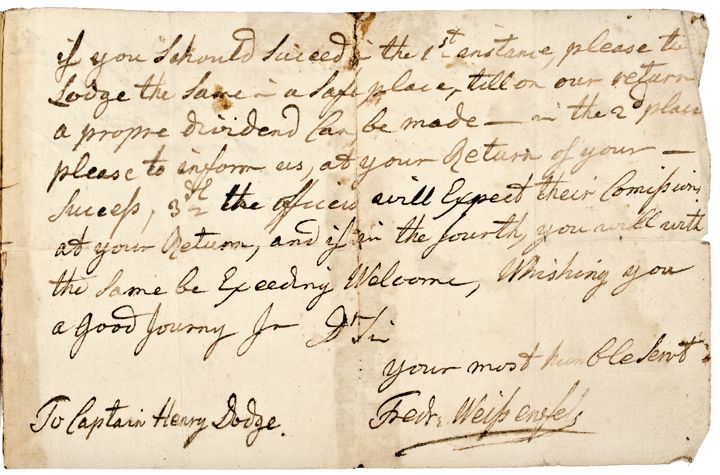 if you Should Suceed in the 1st instance, please to
Lodge the Same in a Safe place, till on our return
a propre dividend Can be made — in the 2d place
please to inform us, at your Return of your —
Success, 3 the officers will Expect their Comissions
at your Return, and if in the fourth, you will with
the Same be Exeeding Welcome, Whishing you
a Good Journy Dr Sir
your most humble Servt
To Captain Henry Dodge. Fredk: Weissenfels